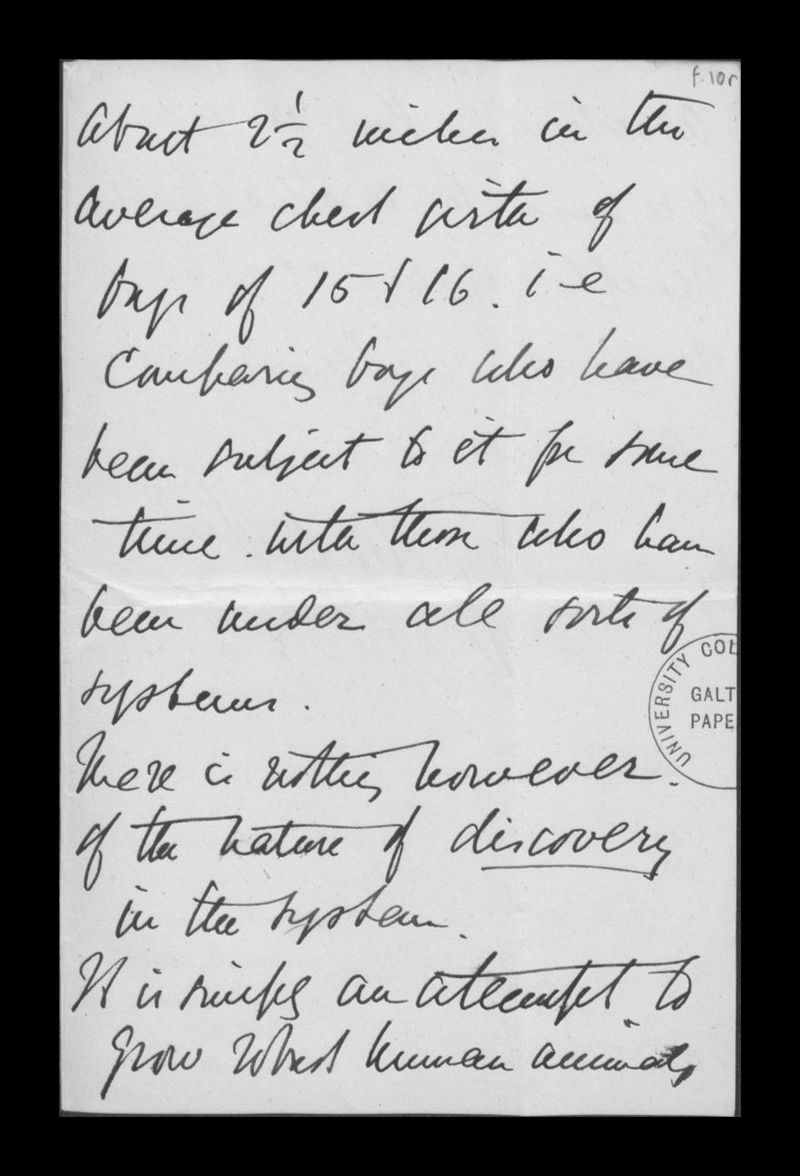 f.10r
about 2½ inches in the
average chest girth of
boys of 15 & 16. i-e
Comparing boys who have
been subject to it for some
time. with those who have
been under all sorts of
systems.
There is nothing however.
of the nature of discovery
in the system.
It is simply an attempt to
grow robust human animals,
UNIVERSITY COL
GALT
PAPE